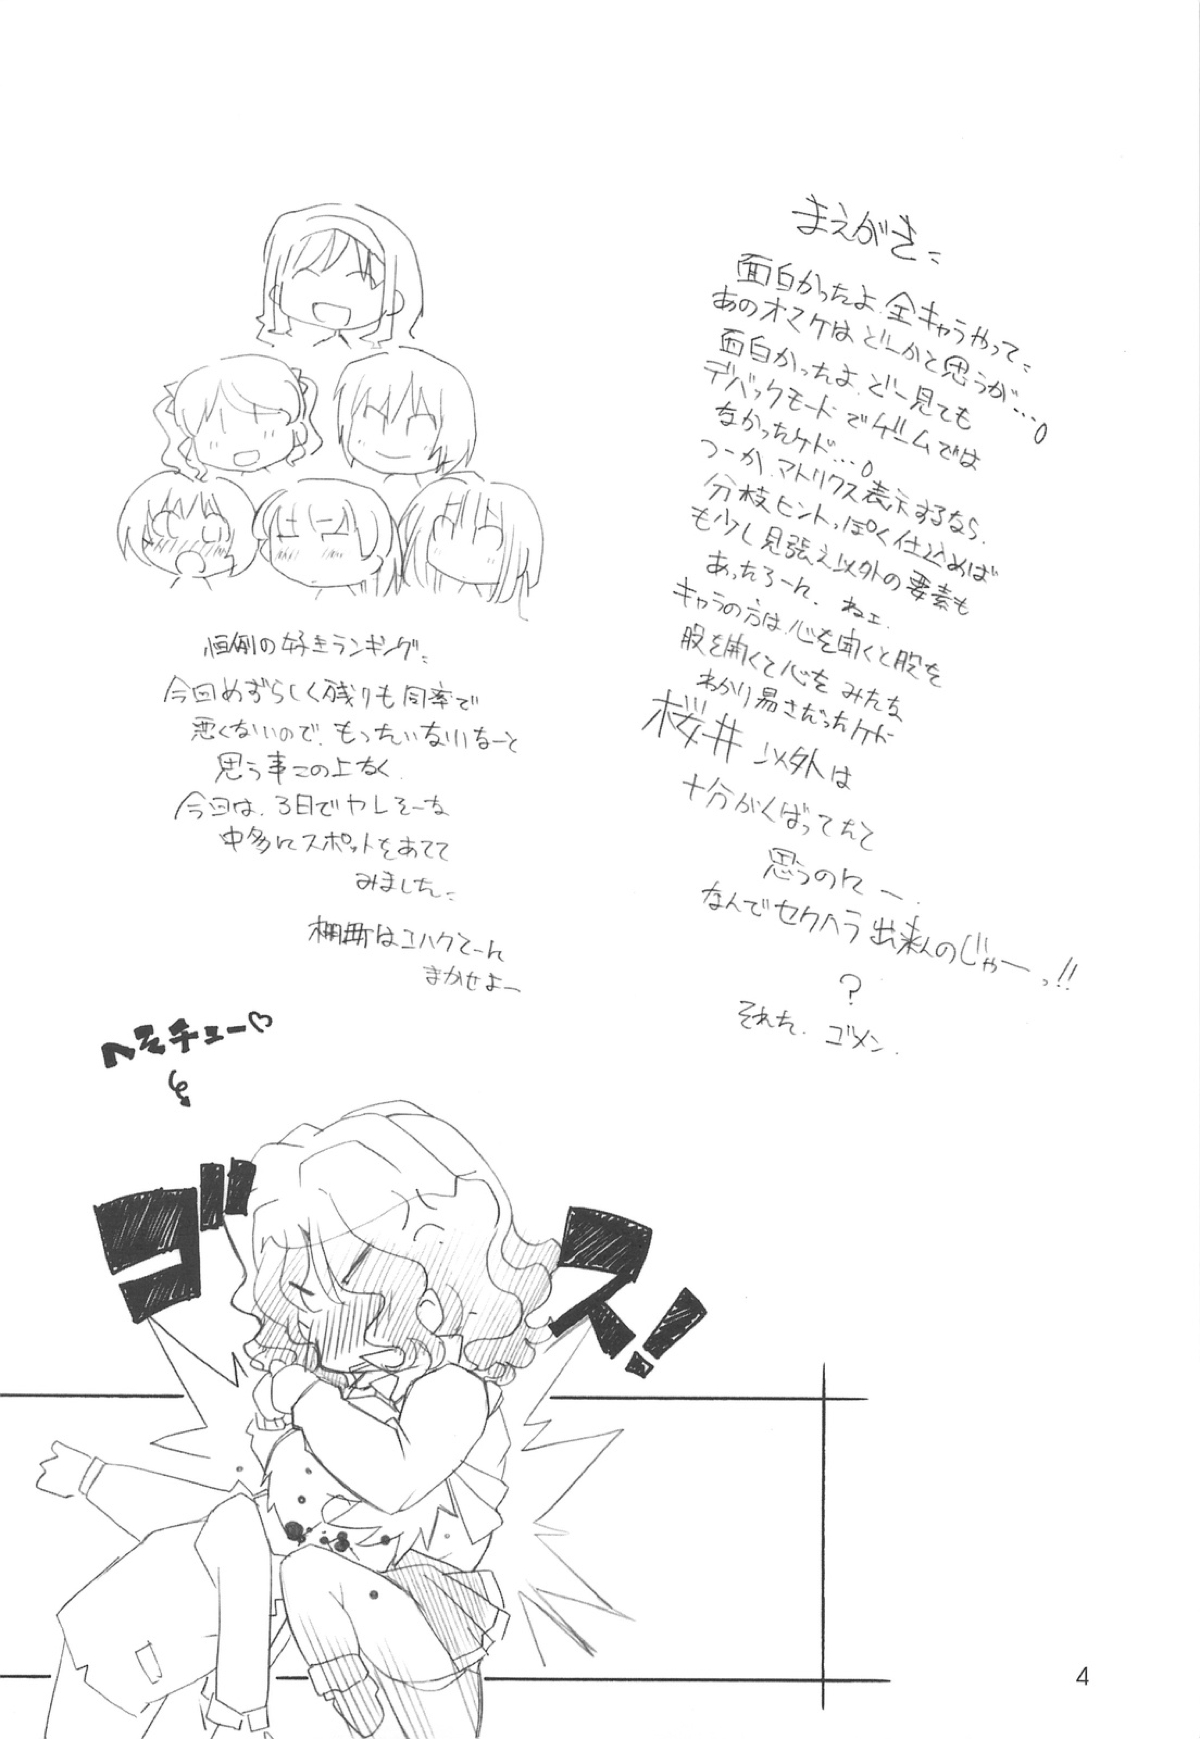 まえがき:
面白かったよ、全キャラやって:
あのオマケはどーかと思うが…。
面白かったよ、どー見ても
デバックモードでゲームでは
なかったケド…。
つーか、マトリクス表示するなら、
分枝ヒントっぽく仕込めば
も少し見張え以外の要素も
あったろーん、ねェ、
キャラの方は、心を開くと股を
股を開くと心を みたな
わかり易さだったケド
桜井 以外は
十分がくばってたと
思うのにー、
なんでセクハラ出来んのじゃーっ!!
?
それた、ゴメン、
恒例の好きランキング:
今回めずらしく残りも同率で
悪くないので、もったいないなーと
思う事この上なく
今回は、3日でヤレそーな
中多にスポットをあてて
みました:
棚町はコハクてーん
まかせよー
へそチュー♡
ゴス!
4